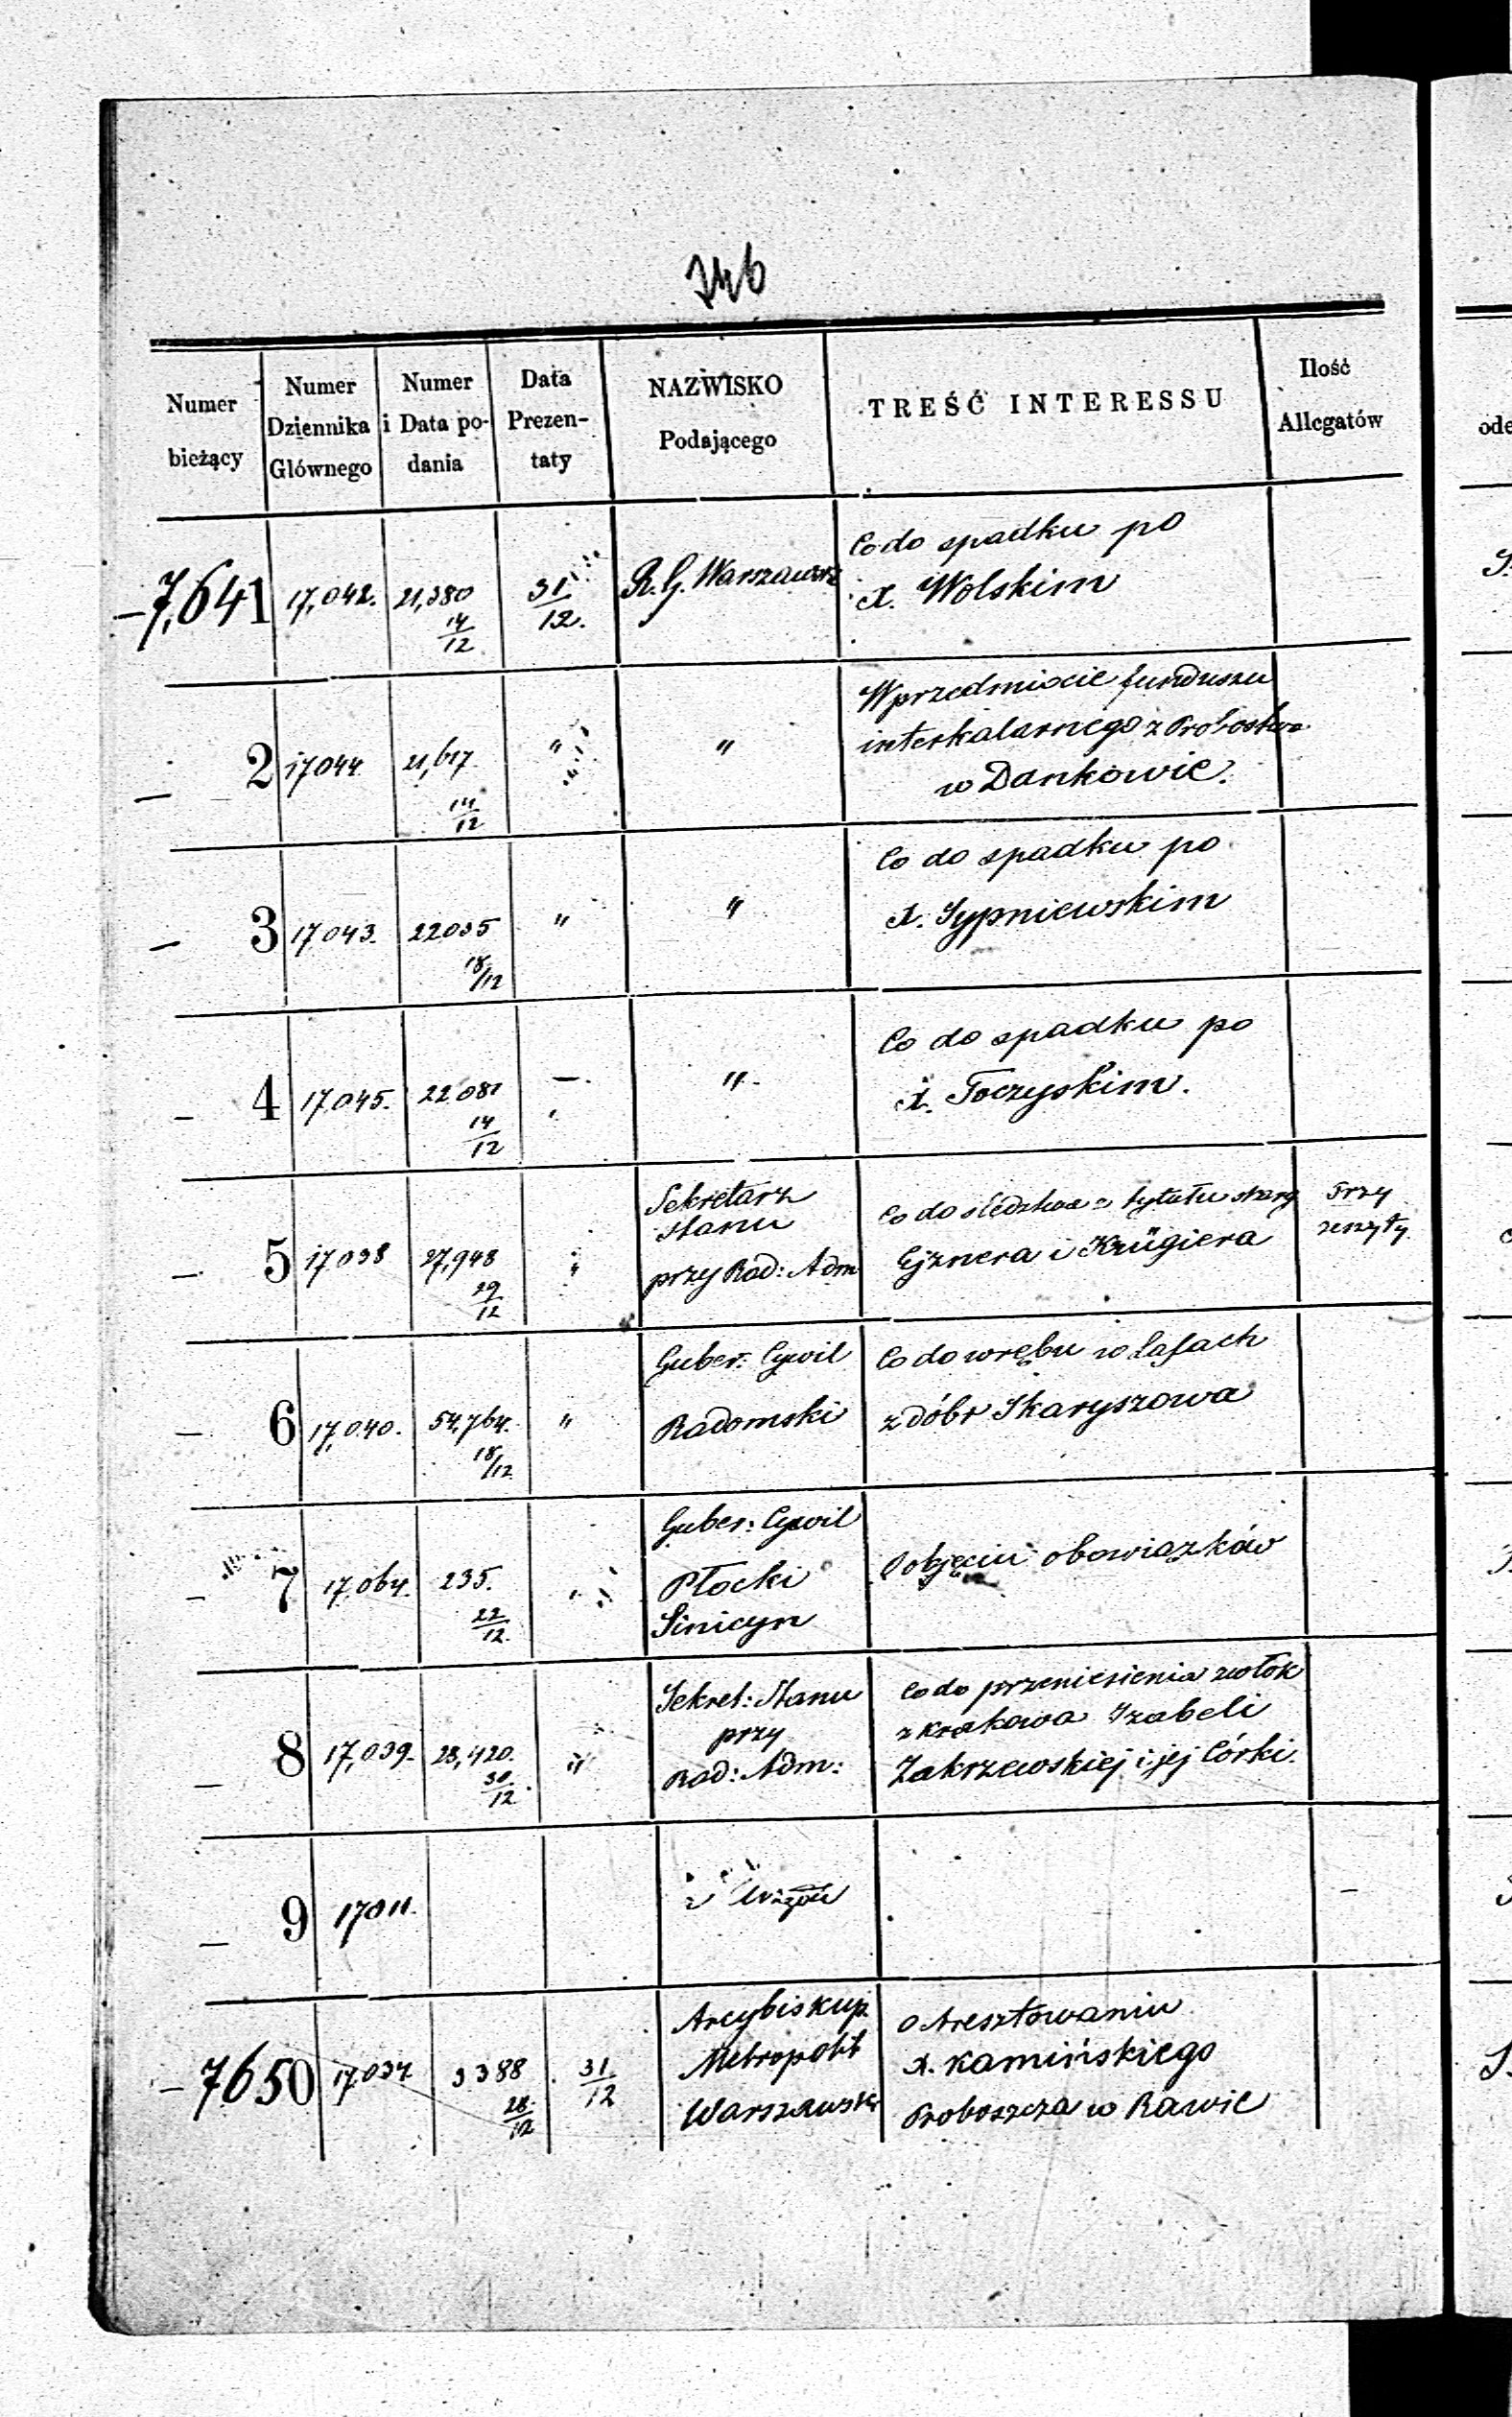 746
Numer bieżący
Numer Dziennika Glównego
Numer i Data podania
Data Prezentaty
NAZWISKO Podającego
TREŚĆ INTERESSU
Ilość Allegatów
7,641 17,042. 21,380 14/12 31/12. R. G. Warszaws
Co do spadku po
X. Wolskim
2 17044 21,617. 14/12 " "
W przedmiocie funduszu
interkalarnego z Probostwa
w Dankowie.
3 17043. 22035 18/12 " "
Co do spadku po
X. Sypniewskim
4 17045. 22081 14/12 — "
Co do spadku po
X. Toczyskim.
5 17038 27,948 29/12 "
Sekretarz
Stanu
przy Rad: Adm
Co do śledztwa z tytułu skarg
Ejznera i Krügiera
Trzy
zeszyty.
6 17,040. 54,764. 18/12 "
Guber: Cywil
Radomski
Co do wrębu w Lasach
z dóbr Skaryszowa
7 17,064. 235. 22/12. "
Guber: Cywil
Płocki
Sinicyn
O objęciu obowiązków
8 17,039. 28,420. 30/12. "
Sekret: Stanu
przy
Rad: Adm:
Co do przeniesienia zwłok
z Krakowa Izabeli
Zakrzewskiej i jej Córki.
9 17011.
z Urzędu
—
7650 17.037 3388 28/12 31/12
Arcybiskup
Metropolit
Warszawski
O Aresztowaniu
X. Kamińskiego
Proboszcza w Rawie